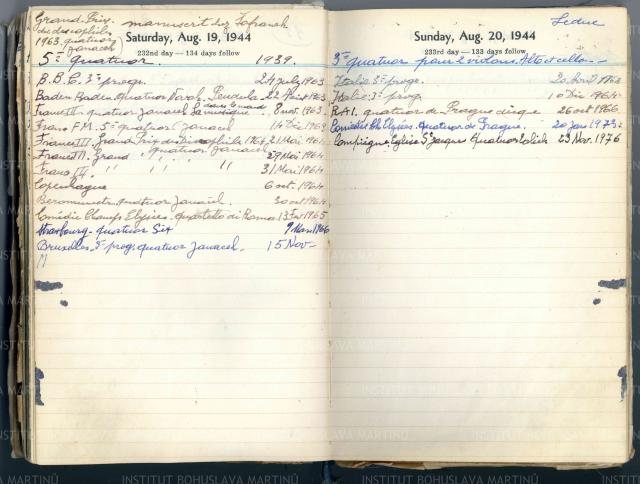 Grand Prix
du disquophile
1963. quatuor
Janacek
manuscrit chez
Saturday, Aug. 19, 1944
232nd day — 134 days follow
5e quatuor. 1939.
B.B.C. 3e progr. 24 July 1963
Baden Baden. quatuor Novak. 22 Août 1963
France III. quatuor Janacek 8 nov. 1963
France F.M. 5e quatuor Janacek 14 Dec 1963
France III. Grand Prix des Discophiles 1964. 21 Mai 1964
quatuor Janacek
France III. Grand " " " 29 Mai 1964
France IV. " " " 31 Mai 1964
Copenhague 6 oct. 1964
Beromunster quatuor Janacek. 30 oct 1964
Comédie Champs Elysées. quartetto di Roma 13 Fev 1965
Strasbourg - quatuor Six 9 Mars 1966
Bruxelles. 3e progr. quatuor Janacek. 15 Nov -
Leduc
Sunday, Aug. 20, 1944
233rd day — 133 days follow
3e quatuor pour 2 violons. Alto et cello
Italie. 3e progr. 20 Avril 1963
Italie. 3e prog 10 Dec 1964
R.A.I. quatuor de Prague disque 26 oct 1966
Comédie Ch. Elysées. quatuor de Prague. 20 Janv 1973
Compiègne. Eglise St Jacques quatuor 23 Nov. 1976
INSTITUT BOHUSLAVA MARTINŮ